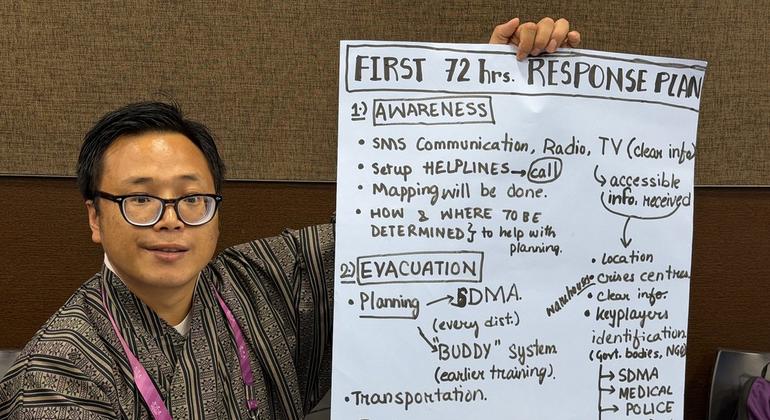 FIRST 72 hrs. RESPONSE PLAN
1:) AWARENESS
• SMS Communication, Radio, TV (clear info)
• Setup HELPLINES → call
• Mapping will be done.
• HOW & WHERE TO BE
DETERMINED} to help with
planning.
↳ accessible
info. received
• location
• crises centres
warehouse
• clear info.
• keyplayers
identification
(Govt. bodies, NGO
→ SDMA
→ MEDICAL
→ POLICE
2:) EVACUATION
• Planning → SDMA.
(every dist.)
"BUDDY" System
(earlier training).
• Transportation.